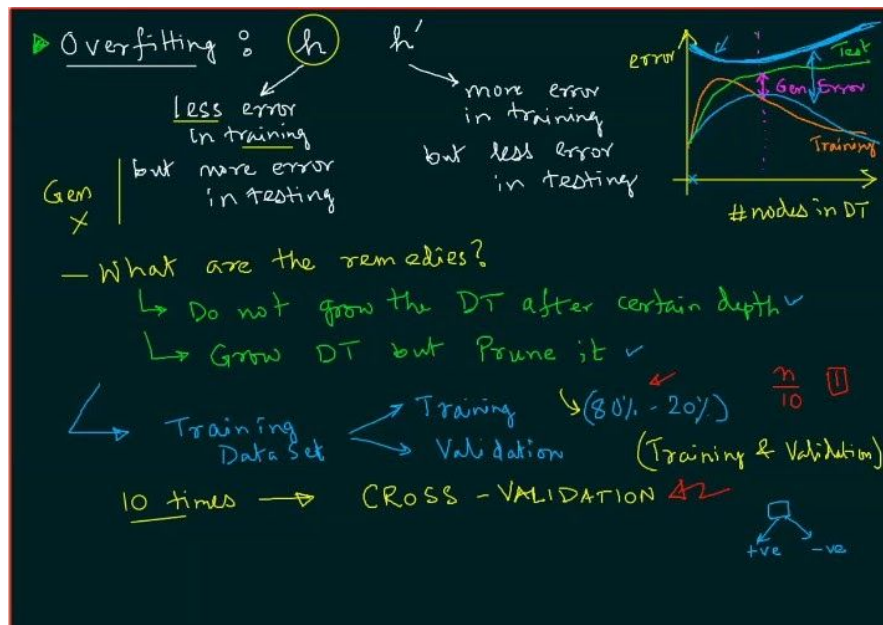 Overfitting : h h'
less error
in training
but more error
in testing
more error
in training
but less error
in testing
Gen
X
error
Test
Gen. Error
Training
# nodes in DT
— What are the remedies?
↳ Do not grow the DT after certain depth ✓
↳ Grow DT but Prune it ✓
Training
Data Set
Training
Validation
(80% - 20%)
n/10 1
(Training & Validation)
10 times → CROSS - VALIDATION
+ve -ve